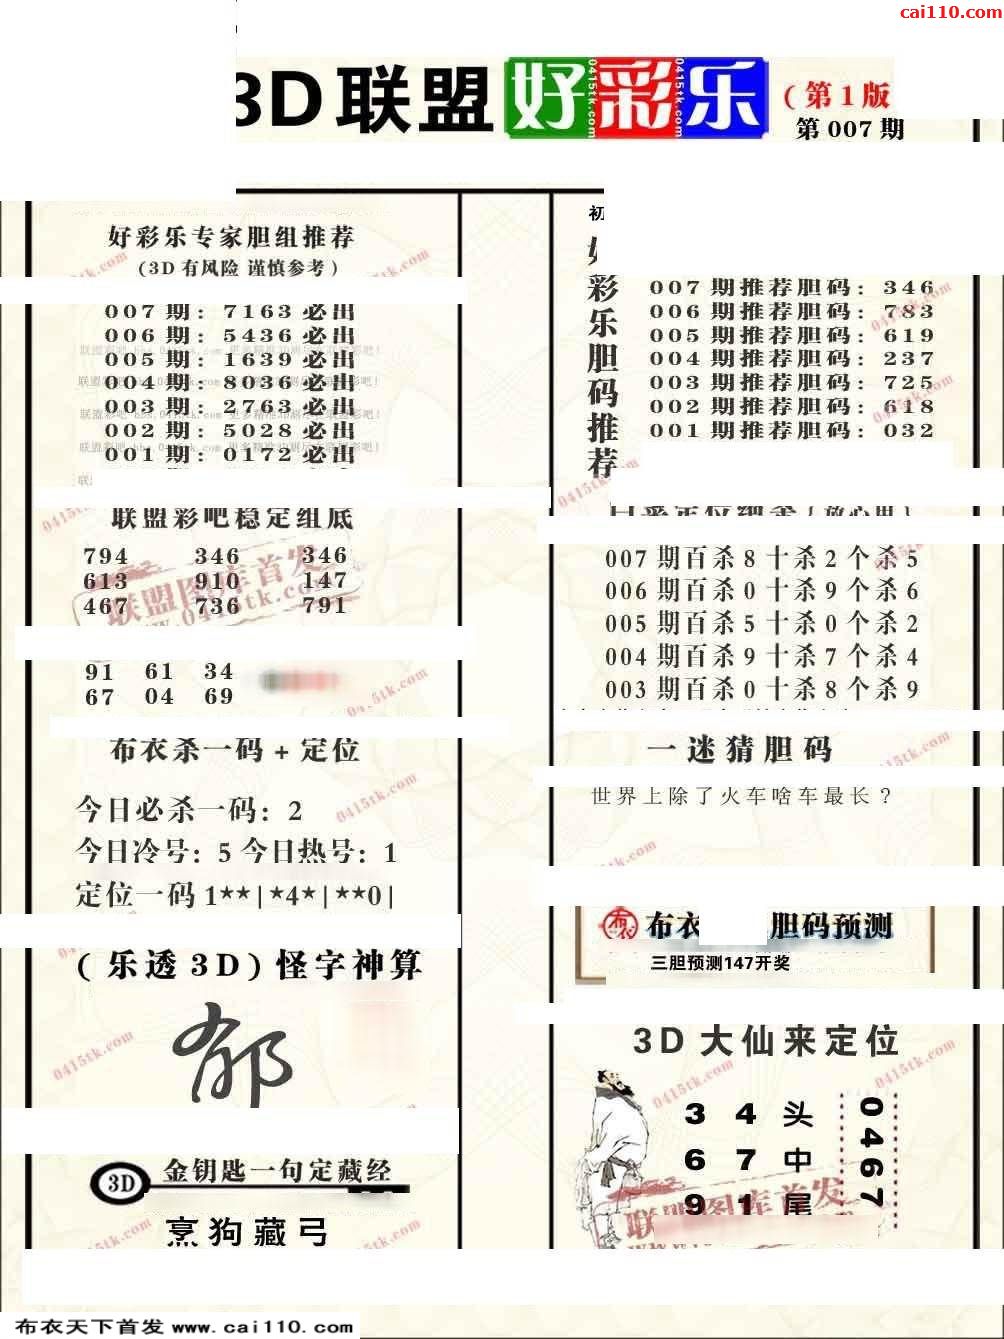 cai110.com
3D联盟 好彩乐 (第1版
第007期
好彩乐专家胆组推荐
(3D有风险 谨慎参考)
007期: 7163必出
006期: 5436必出
005期: 1639必出
004期: 8036必出
003期: 2763必出
002期: 5028必出
001期: 0172必出
联盟彩吧稳定组底
794 346 346
613 910 147
467 736 791
91 61 34
67 04 69
布衣杀一码+定位
今日必杀一码: 2
今日冷号: 5 今日热号: 1
定位一码 1**|*4*|**0|
(乐透3D)怪字神算
郁
3D 金钥匙一句定藏经
烹狗藏弓
初
好彩乐胆码推荐
007期推荐胆码: 346
006期推荐胆码: 783
005期推荐胆码: 619
004期推荐胆码: 237
003期推荐胆码: 725
002期推荐胆码: 618
001期推荐胆码: 032
007期百杀8十杀2个杀5
006期百杀0十杀9个杀6
005期百杀5十杀0个杀2
004期百杀9十杀7个杀4
003期百杀0十杀8个杀9
一迷猜胆码
世界上除了火车啥车最长?
布衣 胆码预测
三胆预测147开奖
3D大仙来定位
3 4 头
6 7 中
9 1 尾
0467
联盟图库首发
布衣天下首发 www.cai110.com